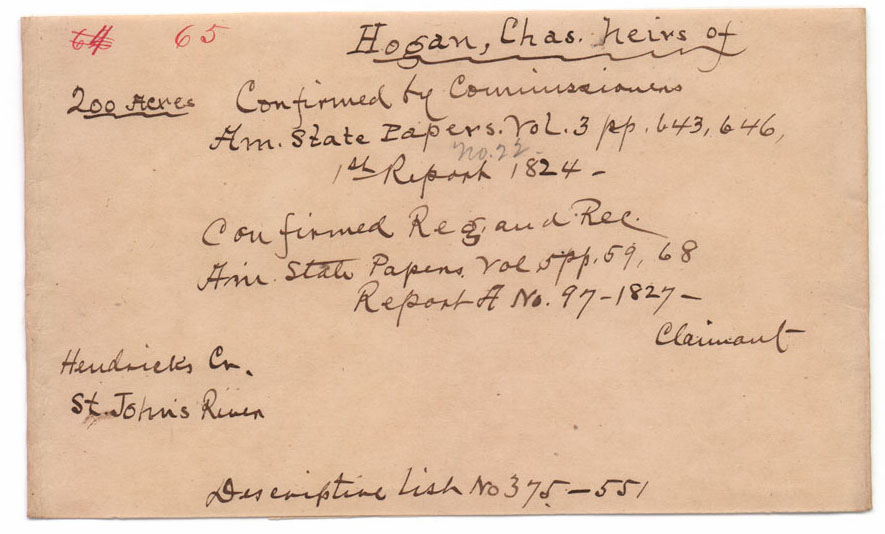 64 65 Hogan, Chas. heirs of
200 Acres Confirmed by Commissioners
Am. State Papers. Vol. 3 pp. 643, 646,
No. 22
1st Report 1824 -
Confirmed Reg. and Rec.
Am. State Papers. Vol 5 pp. 59, 68
Report A No. 97 - 1827 -
Claimant
Hendricks Cr.
St. Johns River
Descriptive List No 375 - 551